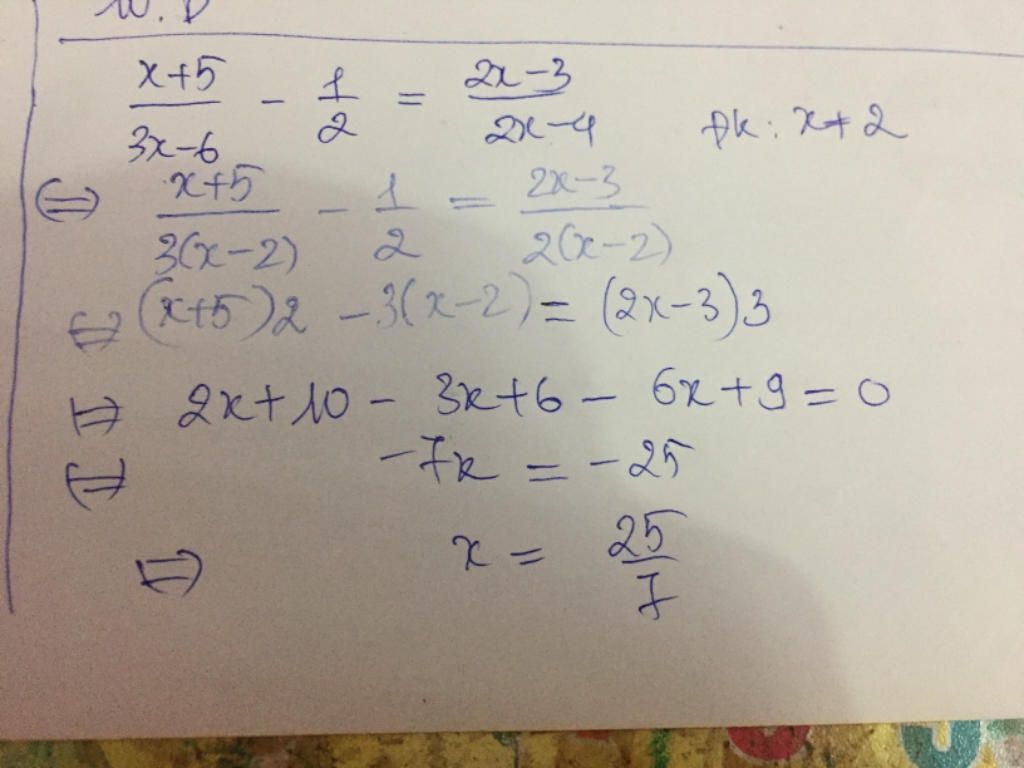 10. D
x+5/3x-6 - 1/2 = 2x-3/2x-4 đk: x≠2
⇔ x+5/3(x-2) - 1/2 = 2x-3/2(x-2)
⇔ (x+5)2 - 3(x-2) = (2x-3)3
⇔ 2x+10 - 3x+6 - 6x+9 = 0
⇔ -7x = -25
⇔ x = 25/7